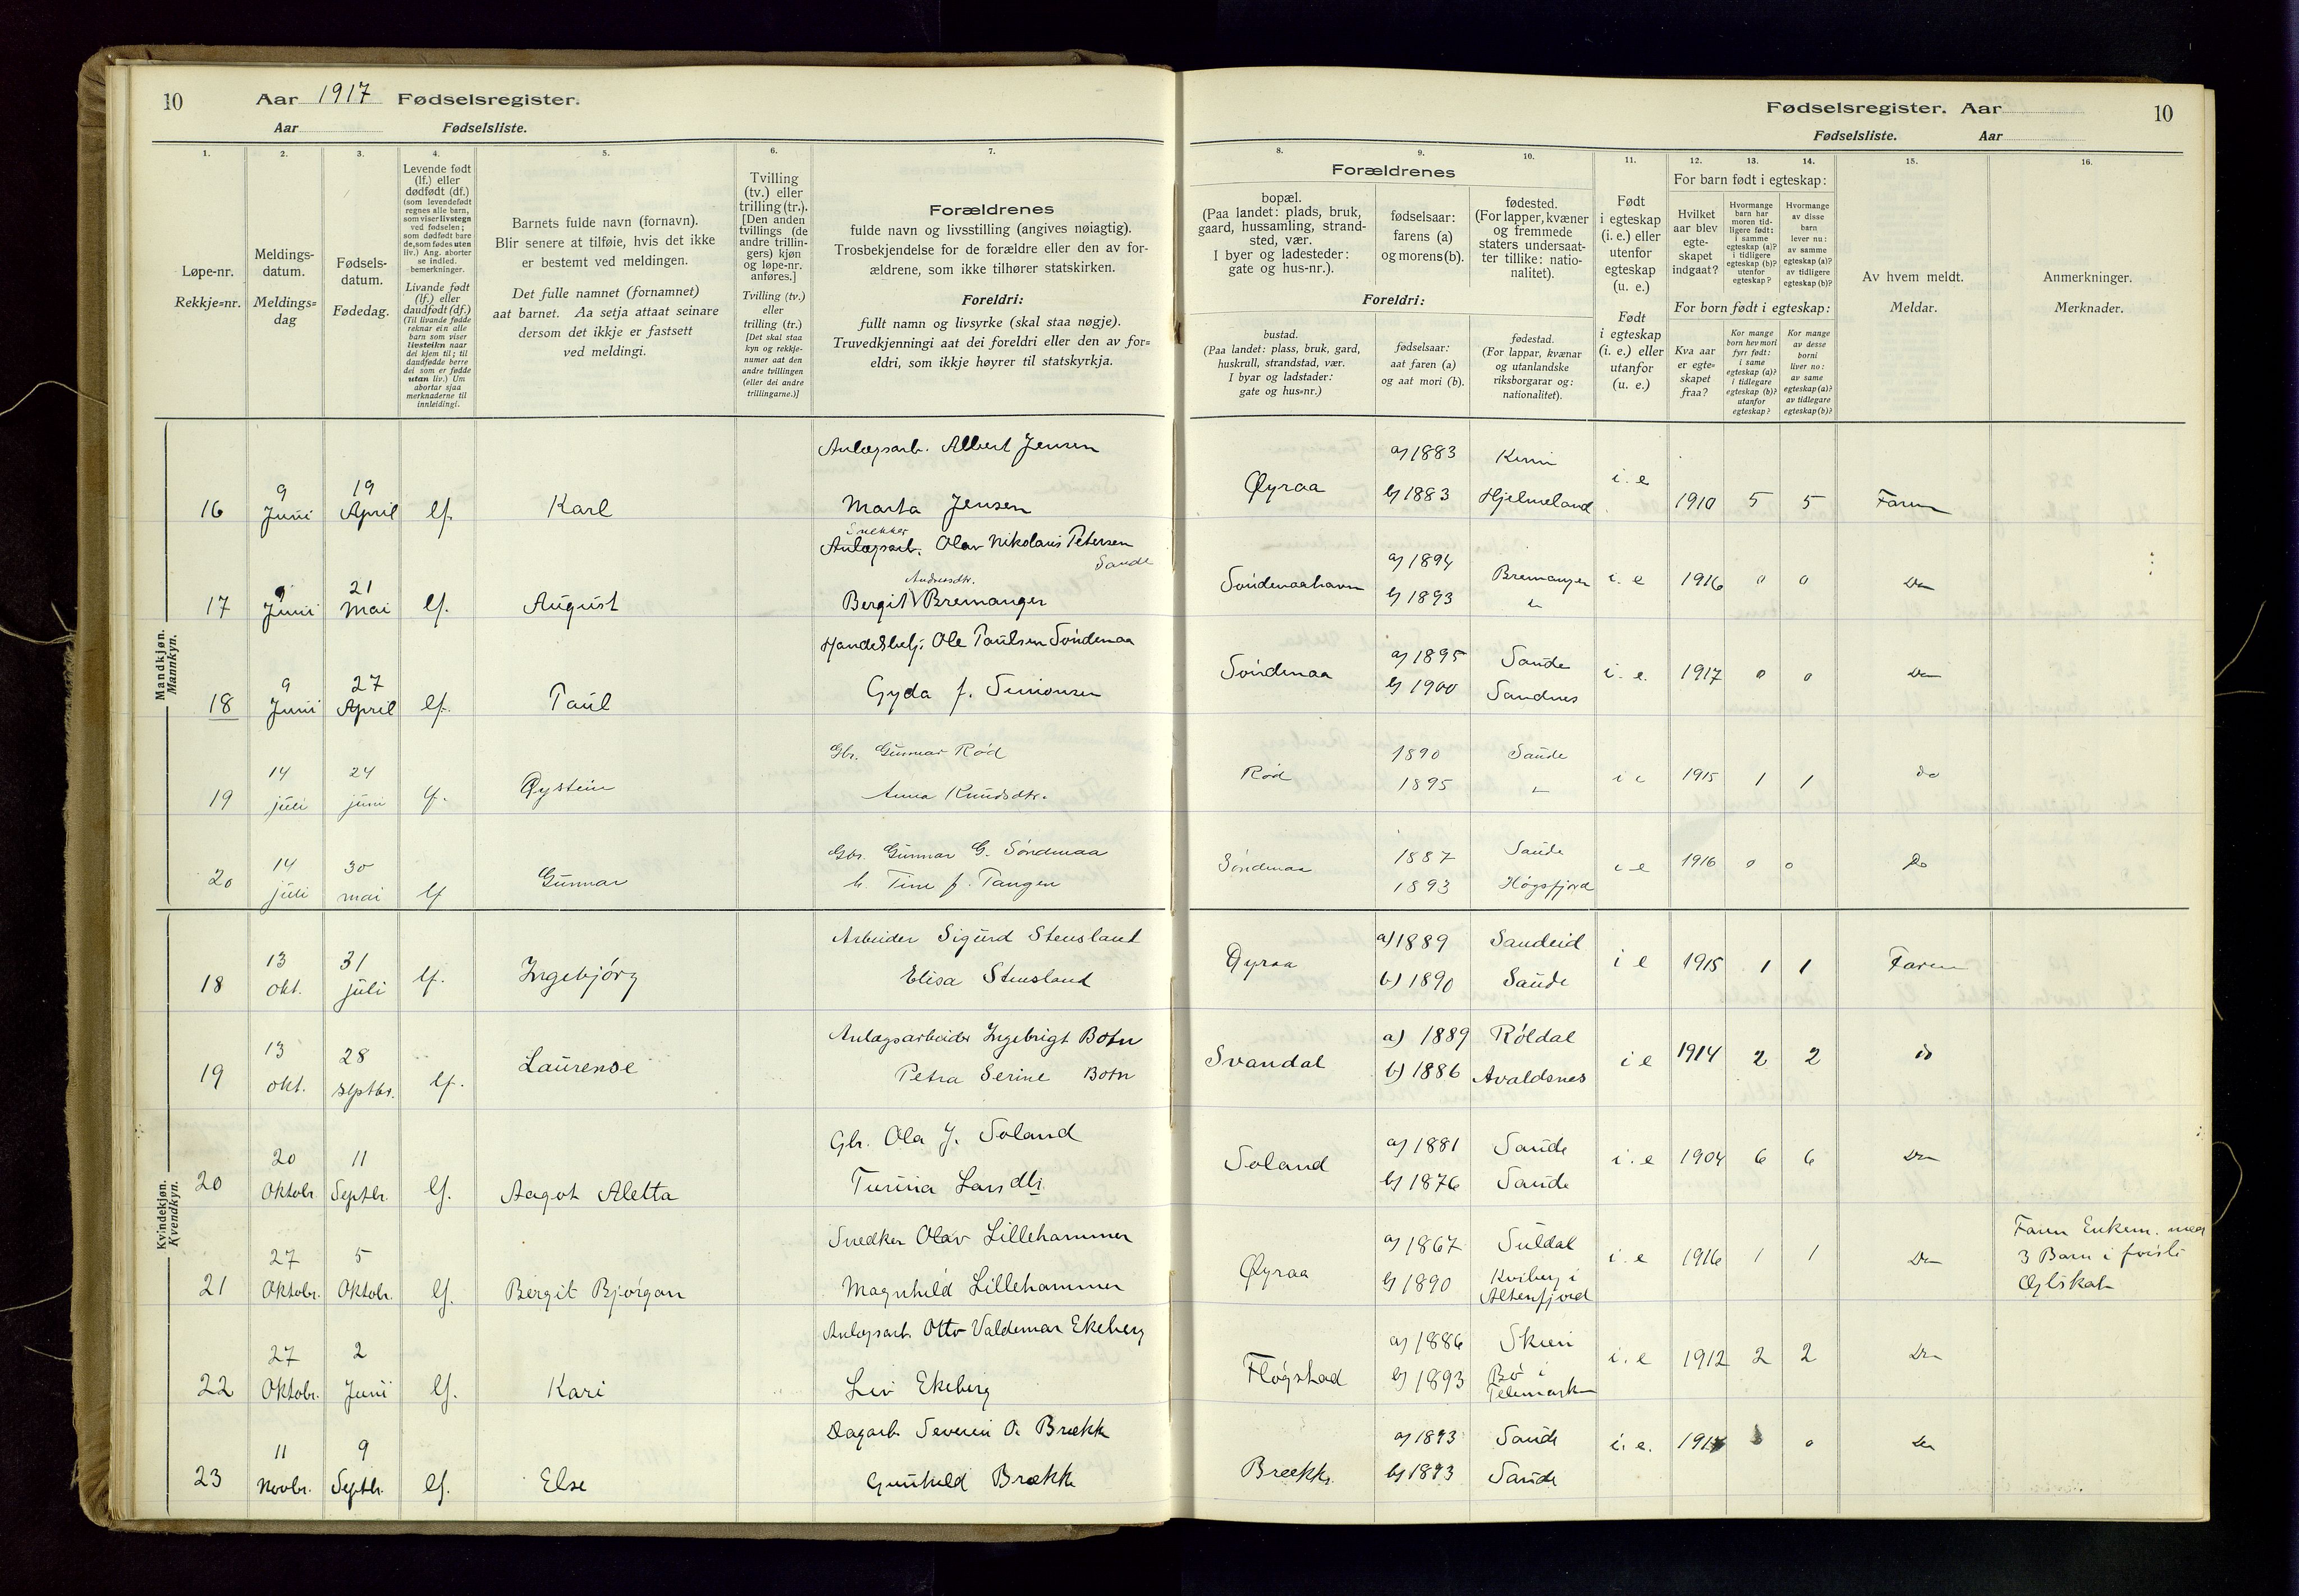 10 Aar 1917 Fødselsregister.
Aar Fødselsliste.
Fødselsregister. Aar 10
Fødselsliste. Aar
1. 2. 3. 4. 5. 6. 7. 8. 9. 10. 11. 12. 13. 14. 15. 16.
Løpe-nr.
Rekkje=nr.
Meldings-
datum.
Meldings=
dag
Fødsels-
datum.
Fødedag.
Levende født
(lf.) eller
dødfødt (df.)
(som levendefødt
regnes alle barn,
som viser livstegn
ved fødselen;
som dødfødt bare
de, som fødes uten
liv.) Ang. aborter
se indled.
bemerkninger.
Livande født
(lf.) eller
daudfødt (df.)
(Til livande fødde
reknar ein alle
barn som viser
livsteikn naar
dei kjem til; til
daudfødde berre
dei som er fødde
utan liv.) Um
abortar sjaa
merknaderne til
innleidingi.
Barnets fulde navn (fornavn).
Blir senere at tilføie, hvis det ikke
er bestemt ved meldingen.
Det fulle namnet (fornamnet)
aat barnet. Aa setja attaat seinare
dersom det ikkje er fastsett
ved meldingi.
Tvilling
(tv.) eller
trilling (tr.).
[Den anden
tvillings (de
andre trillin-
gers) kjøn
og løpe-nr.
anføres.]
Tvilling (tv.)
eller
trilling (tr.)
[Det skal staa
kyn og rekkje-
numer aat den
andre tvillingen
(eller dei andre
trillingarne.)]
Forældrenes
fulde navn og livsstilling (angives nøiagtig).
Trosbekjendelse for de forældre eller den av for-
ældrene, som ikke tilhører statskirken.
Foreldri:
fullt namn og livsyrke (skal staa nøgje).
Truvedkjenningi aat dei foreldri eller den av for=
eldri, som ikkje høyrer til statskyrkja.
Forældrenes
bopæl.
(Paa landet: plads, bruk,
gaard, hussamling, strand-
sted, vær.
I byer og ladesteder:
gate og hus-nr.).
fødselsaar:
farens (a)
og morens (b).
fødested.
(For lapper, kvæner
og fremmede
staters undersaat-
ter tillike: natio-
nalitet).
Foreldri:
bustad.
(Paa landet: plass, bruk, gard,
huskrull, strandstad, vær.
I byar og ladstader:
gate og hus=nr.)
fødselsaar:
aat faren (a)
og aat mori (b).
fødestad.
(For lappar, kvænar
og utanlandske
riksborgarar og:
nationalitet).
Født
i egteskap
(i. e.) eller
utenfor
egteskap
(u. e.)
Født
i egteskap
(i. e.) eller
utanfor
(u. e.)
For barn født i egteskap:
Hvilket
aar blev
egte-
skapet
indgaat?
Hvormange
barn har
moren tid-
ligere født:
i samme
egteskap (a)?
i tidligere
egteskap (b)?
utenfor
egteskap?
Hvormange
av disse
barn
lever nu:
av samme
egteskap (a)?
av tidligere
egteskap (b)?
For born født i egteskap:
Kva aar
er egte=
skapet
fraa?
Kor mange
born hev mori
fyrr født:
i same
egteskap (a)?
i tidlegare
egteskap (b)?
utanfor
egteskap?
Kor mange
av desse
borni
liver no:
av same
egteskap (a)?
av tidlegare
egteskap (b)?
Av hvem meldt.
Meldar.
Anmerkninger.
Merknader.
Mandkjøn.
Mannkyn.
16 9 Juni 19 April lf. Karl Anlægsarb. Albert Jensen
Marta Jensen
Øyraa a) 1883 b) 1883 Hjelmeland i. e 1910 5 5 Faren
17 9 Juni 21 Mai lf. August Snekker Anlægsarb. Olav Nikolaus Petersen Sande
Andreasdtr.
Bergit Bremanger
Søndenaahavn a) 1894 Bremanger b) 1893 i. e 1916 0 0 Do
18 9 Juni 27 April lf. Paul Handelsbetj. Ole Paulsen Søndenaa
Gyda f. Simonsen
Søndenaa a) 1895 Saude b) 1900 Sandnes i. e. 1917 0 0 Do
19 14 juli 24 juni lf. Øystein Gbr. Gunnar Rød
Anna Knudsdtr.
Rød 1890 Saude 1895 i e 1915 1 1 do
20 14 juli 30 mai lf Gunnar Gbr. Gunnar G. Søndenaa
h. Tine f. Tangen
Søndenaa 1887 Saude 1893 Høgsfjord i e 1916 0 0 Do
Kvindekjøn.
Kvendkyn.
18 13 okt. 31 juli lf. Ingebjørg Arbeider Sigurd Stensland
Elisa Stensland
Øyraa a) 1889 Sandeid b) 1890 Saude i e 1915 1 1 Faren
19 13 okt. 28 septbr. lf. Laurense Anlægsarbeider Ingebrigt Botn
Petra Serine Botn
Svandal a) 1889 Røldal b) 1886 Avaldsnes i e 1914 2 2 do
20 20 Oktobr. 11 Septbr. lf. Aagot Aletta Gbr. Ola J. Soland
Turina Larsdtr.
Soland a) 1881 Saude b) 1876 Saude i. e 1904 6 6 Do
21 27 Oktobr. 5 Oktobr. lf. Bergit Bjørgan Snedker Olav Lillehammer
Magnhild Lillehammer
Øyraa a) 1867 Suldal b) 1890 Kviberg i Altenfjord i. e 1916 1 1 Do Faren Enkem. med
3 Barn i første
Ægtskab
22 27 Oktobr. 2 Juni lf. Kari Anlægsarb. Otto Valdemar Ekeberg
Liv Ekeberg
Fløgstad a) 1886 Skien b) 1893 Bø i Telemarken i. e 1912 2 2 Do
23 11 Novbr. 9 Septbr. lf. Else Dagarb. Severin O. Brække
Gunhild Brække
Brække. a) 1893 Saude b) 1893 Saude i. e. 0 Do